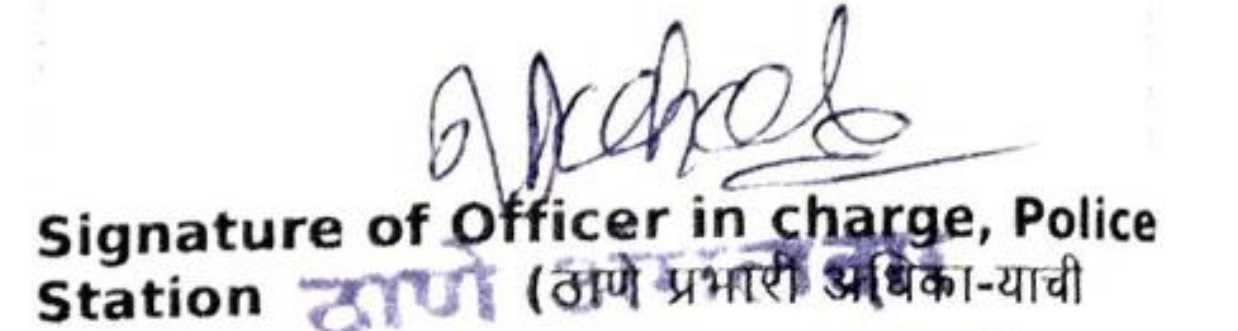 Signature of Officer in charge, Police
Station ठाणे (ठाणे प्रभारी अधिका-याची